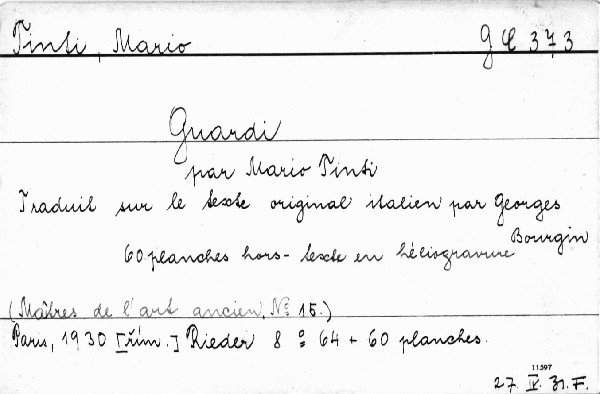 Tinti, Mario g C 373
Guardi
par Mario Tinti
Traduit sur le texte original italien par Georges
Bourgin
60 planches hors-texte en héliogravure
(Maîtres de l'art ancien, No 15.)
Paris, 1930 [řím.] Rieder 8° 64 + 60 planches.
11597
27. V. 31. F.